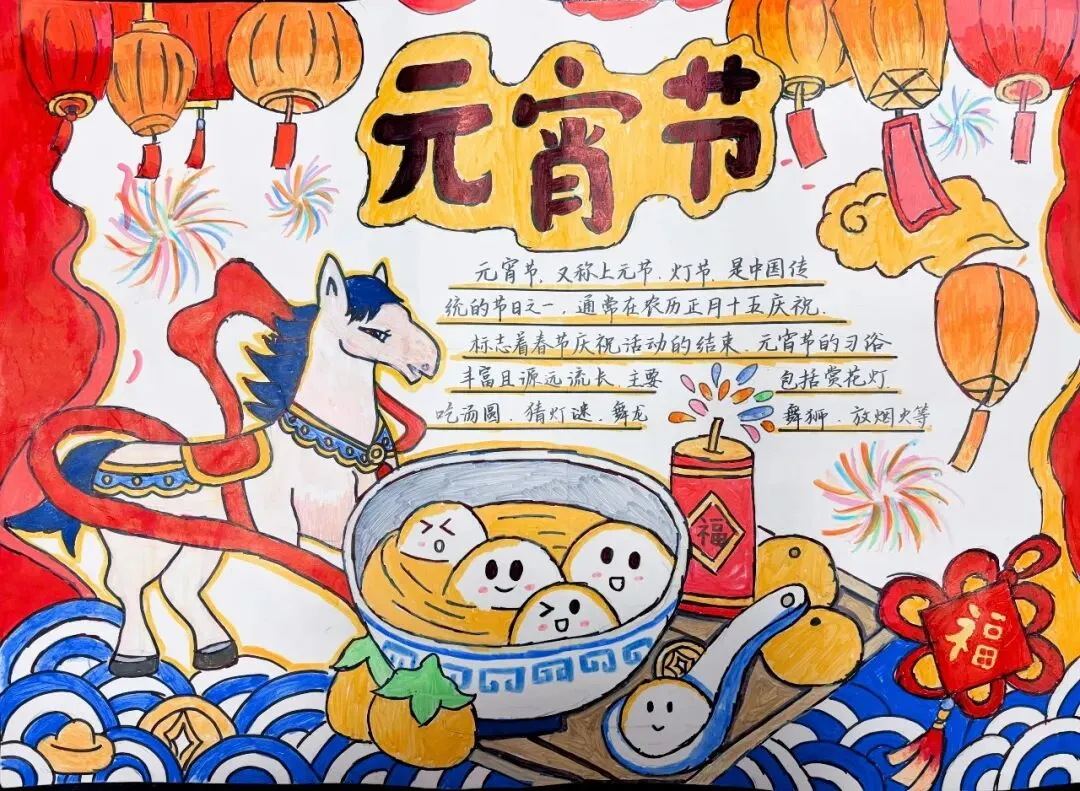 元宵节
元宵节、又称上元节、灯节、是中国传
统的节日之一，通常在农历正月十五庆祝.
标志着春节庆祝活动的结束、元宵节的习俗
丰富且源远流长、主要 包括赏花灯、
吃汤圆、猜灯谜、舞龙 舞狮、放烟火等
福
福